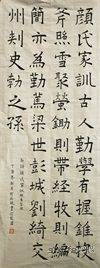 顏氏家訓古人勤學有握錐投
斧照雪聚螢鋤則帶經牧則編
簡亦為勤篤梁世彭城劉綺交
州刺史勃之孫